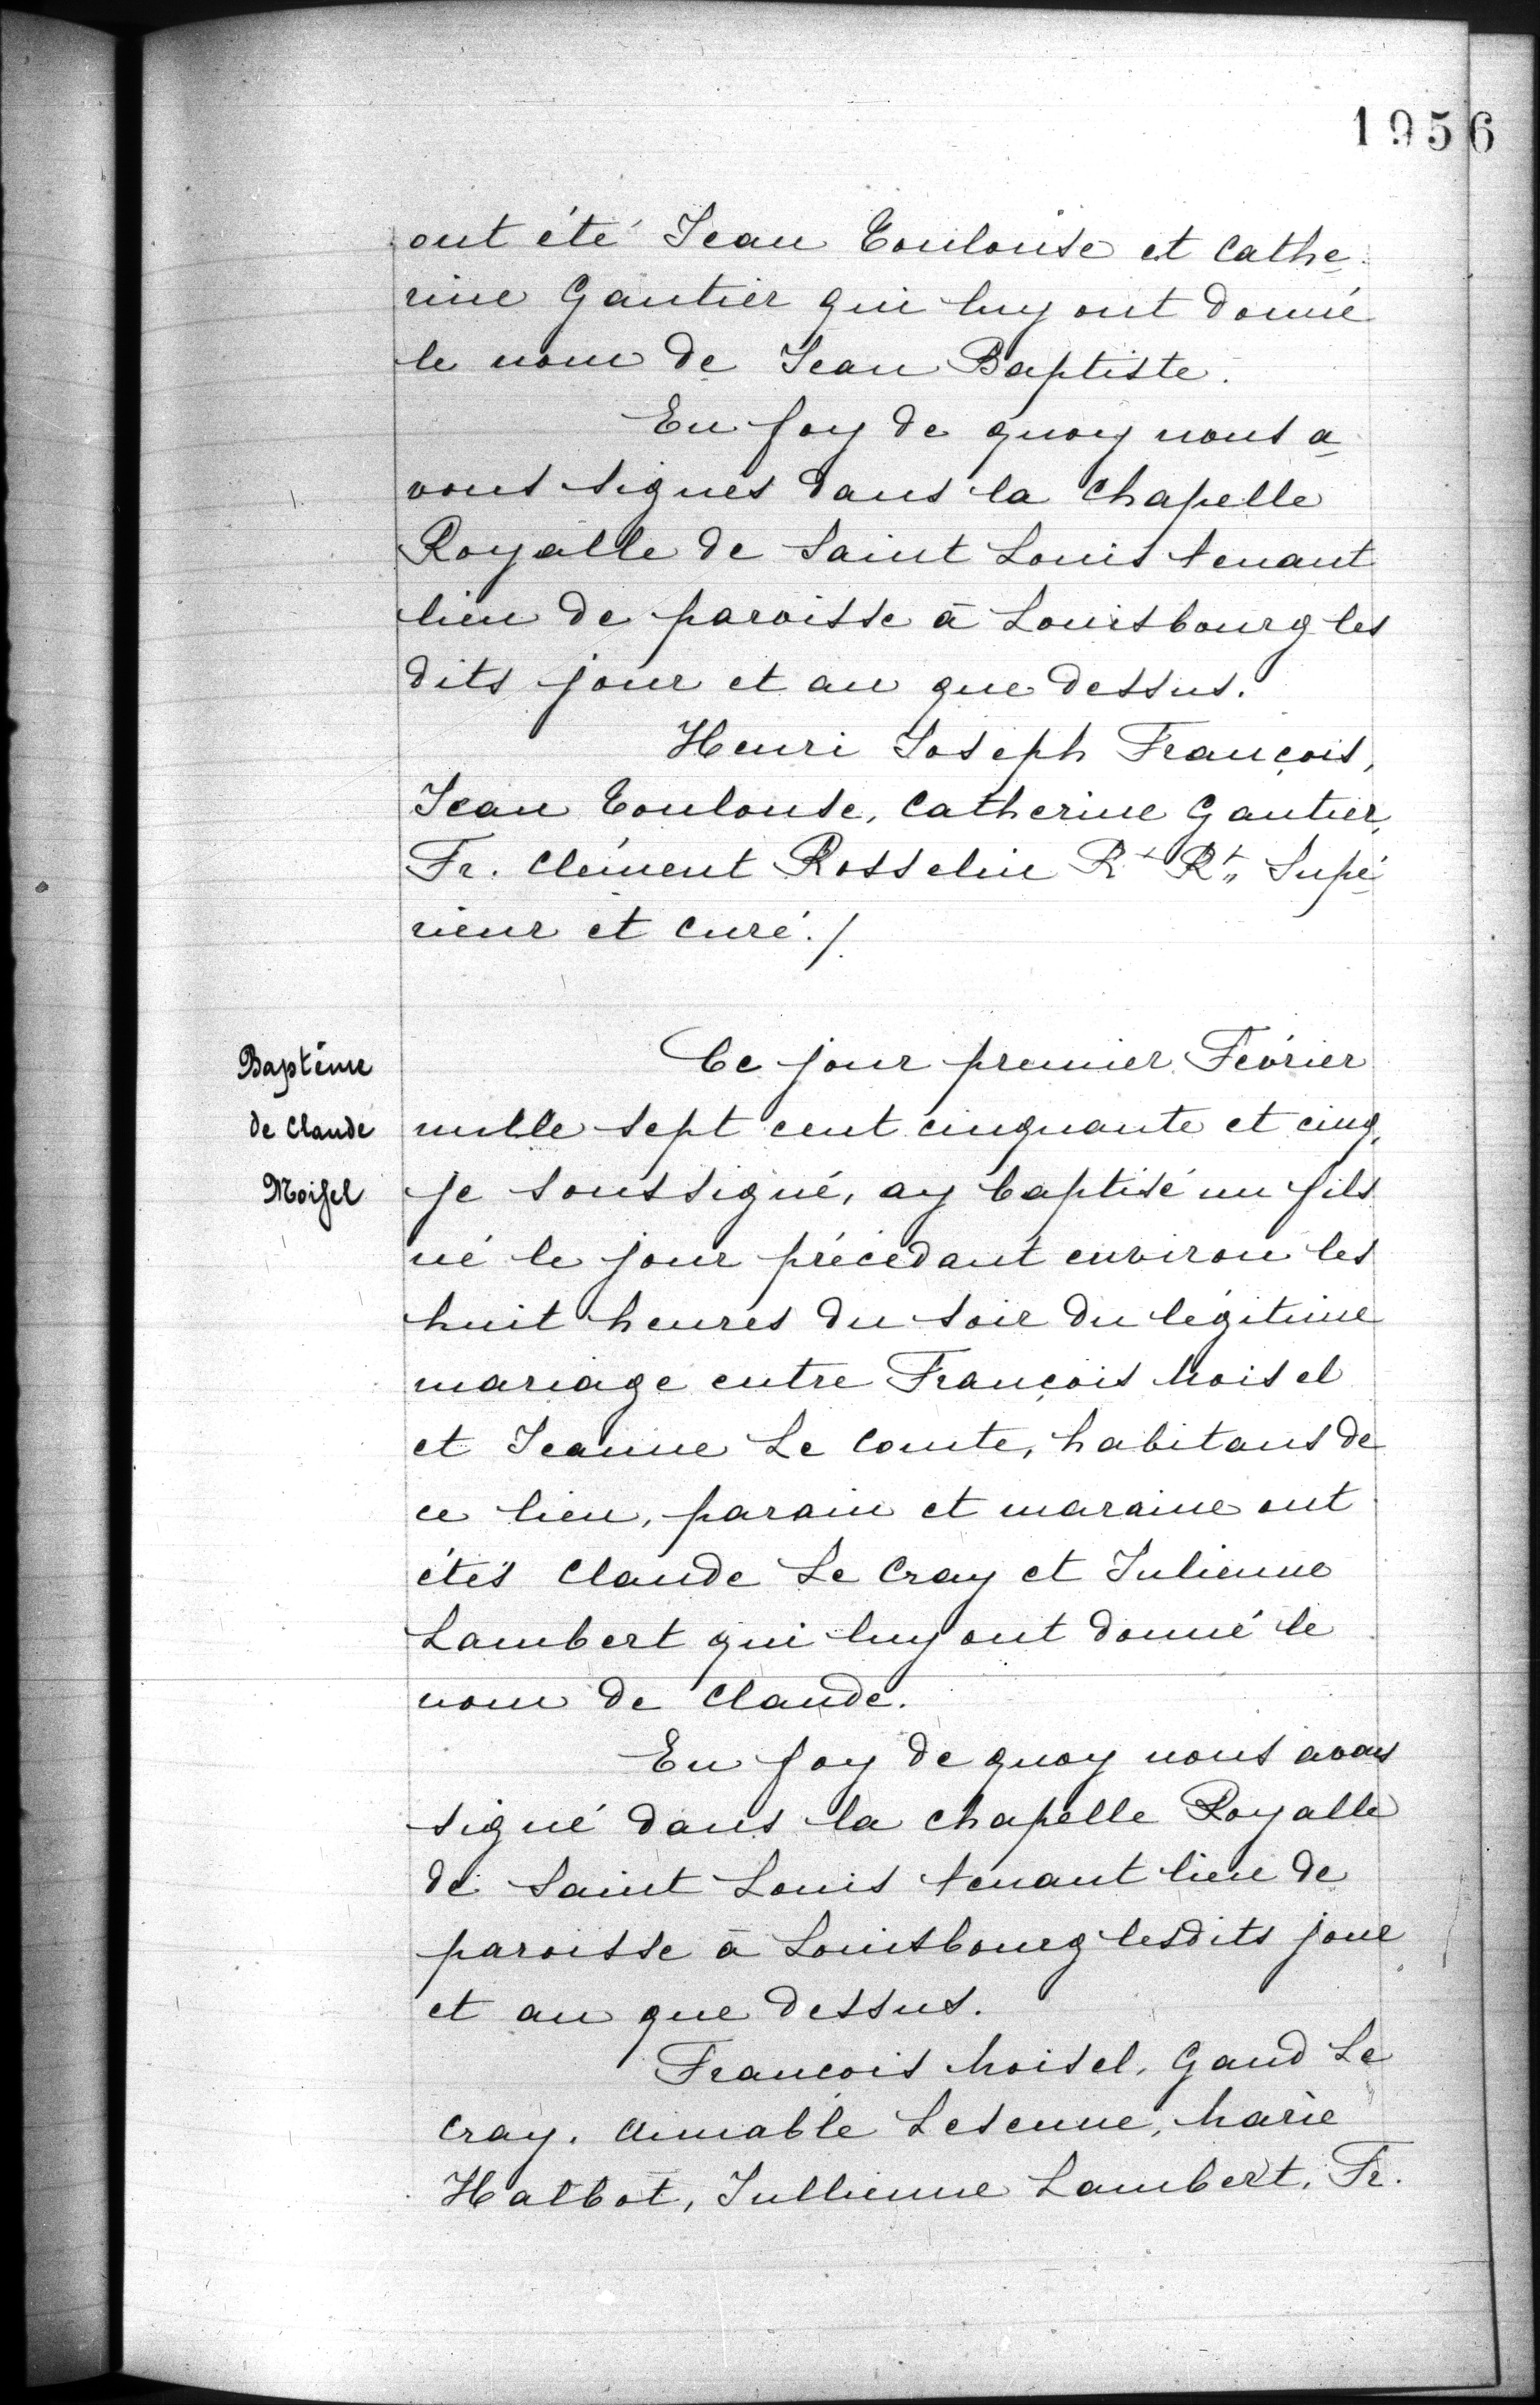 1956
ont été Jean Toulouse et Cathe
rine Gautier qui luy ont donné
le nom de Jean Baptiste.
En foy de quoy nous a
vons signés dans la Chapelle
Royalle de Saint Louis tenant
lieu de paroisse à Louisbourg les
dits jour et an que dessus.
Henri Joseph François,
Jean Toulouse, Catherine Gautier,
Fr. Clément Rosselin Rt Rt,, Supé
rieur et Curé./.
Baptême
de Claude
Moisel
Ce jour premier Février
mille sept cent cinquante et cinq,
je soussigné, ay baptisé un fils
né le jour précédant environ les
huit heures du soir du légitime
mariage entre François Moisel
et Jeanne Le Comte, habitans de
ce lieu, parain et maraine ont
étés Claude Le Cray et Julienne
Lambert qui luy ont donné le
nom de Claude.
En foy de quoy nous avons
signé dans la chapelle Royalle
de Saint Louis tenant lieu de
paroisse à Louisbourg lesdits jour
et an que dessus.
Francois Moisel, Gaud Le
Cray. Aimable Lesenne, Marie
Halbot, Jullienne Lambert, Fr.